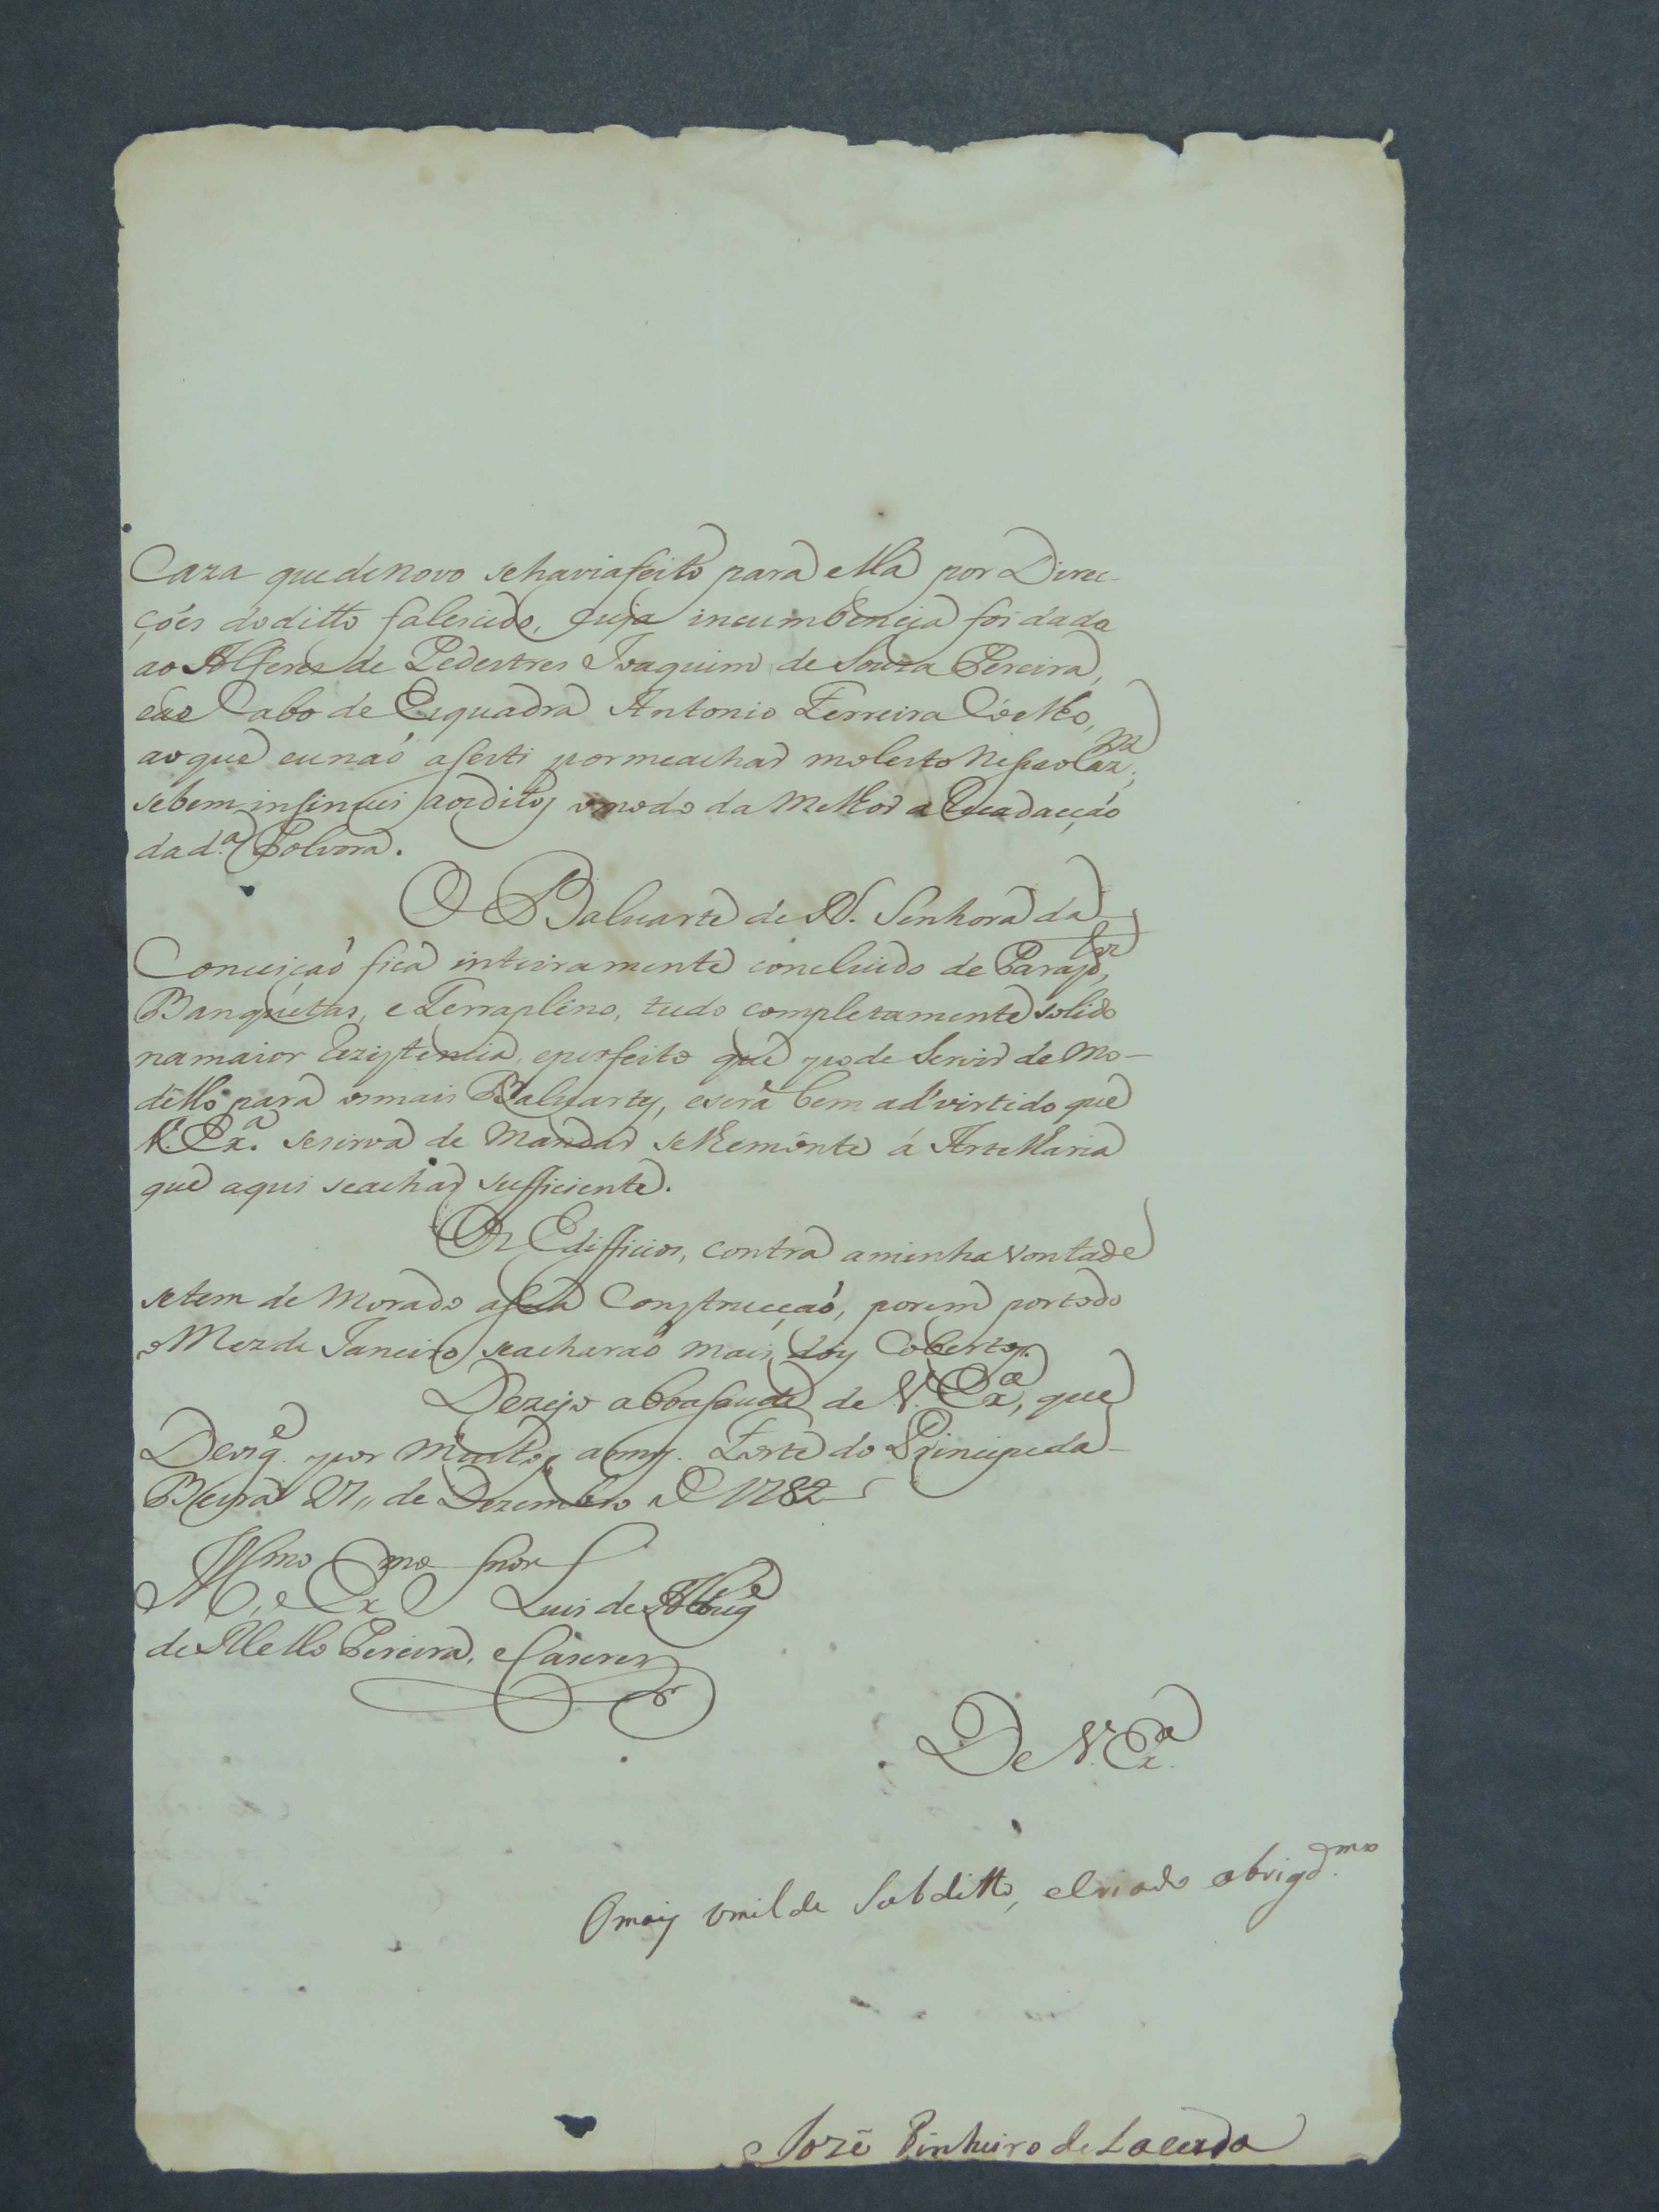 Caza que de novo se havia feito para ella por Direc-
çóes do ditto falescido, cuja incumbencia foi dada
ao Alferes de Pedestres Joaquim de Souza Pereira,
e ao Cabo de Esquadra Antonio Ferreira Coelho,
ao que eu naó asesti por me achar molesto
se bem insinuei aos ditos o modo da melhor aRecadacção
da d.ª Polvora.
O Baluarte de N. Senhora da
Conceiçaó fica inteiramente concluido de
Banquetas, e Terrapléno, tudo completamente solido
na maior Existencia, e perfeito que pode servir de Mo-
déllo para os mais Baluartes, e será bem advirtido que
V. Ex.ª se sirva de mandar se Remónte á Artelharia
que aqui se achar sufficiente.
Os Edifficios, contra a minha vontade
se tem demorado a sua Construcçaó, porem por todo
o Mez de Janeiro se acharaó mais dos Cobertos.
Dezejo a boa saude de V. Ex.ª, que
Deos g.e por muitos annos. Forte do Principe da
Beyra 27,, de Dezembro de 1782
Ill.mo, e Ex.mo Snor Luis de Albuq.e
de Mello Pereira, e Caseres
De V. Ex.ª
O mais umilde Subditto, e Criado obrigd.mo
Jozé Pinheiro de Lacerda